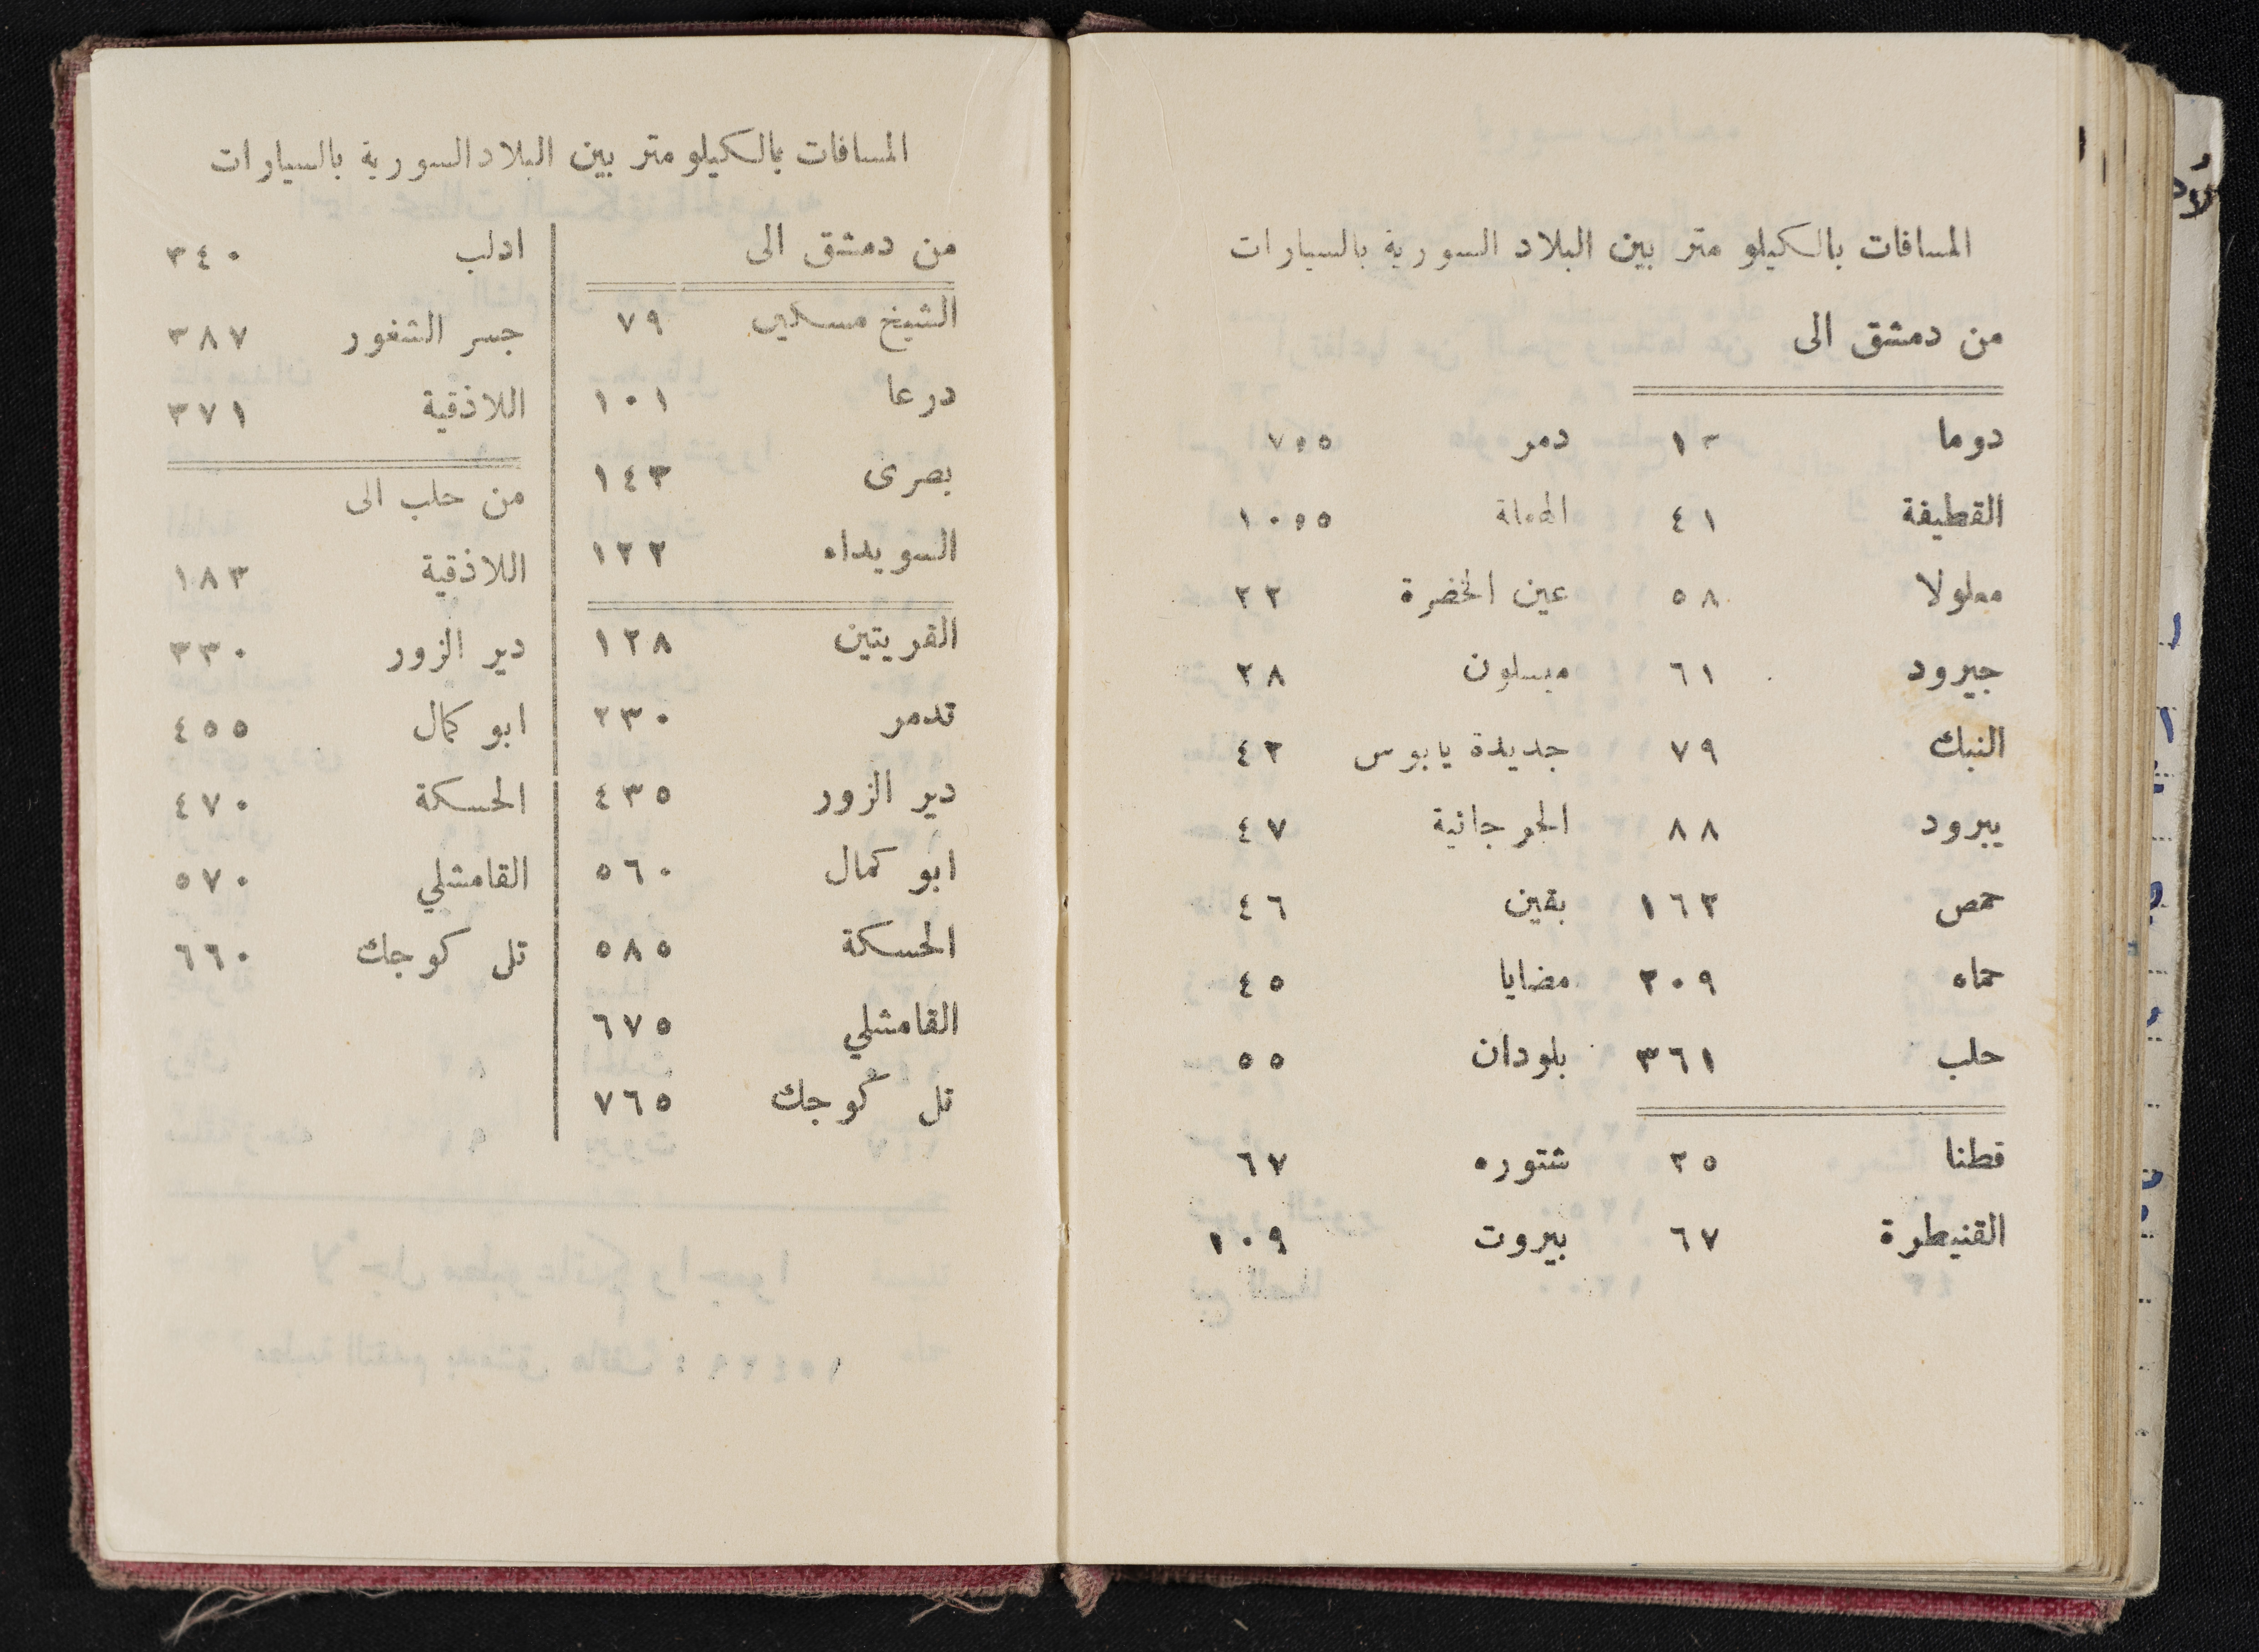 المسافات بالكيلو متر بين البلاد السورية بالسيارات
من دمشق الى
دوما ١٢ دمر ٧،٥
القطيفة ٤١ الهامة ١٠،٥
معلولا ٥٨ عين الخضرة ٢٢
جيرود ٦١ ميسلون ٢٨
النبك ٧٩ جديدة يابوس ٤٢
يبرود ٨٨ الجرجانية ٤٧
حمص ١٦٢ بقين ٤٦
حماه ٢٠٩ مضايا ٤٥
حلب ٣٦١ بلودان ٥٥
قطنا ٢٥ شتوره ٦٧
القنيطرة ٦٧ بيروت ١٠٩
المسافات بالكيلو متر بين البلاد السورية بالسيارات
من دمشق الى
الشيخ مسكين ٧٩
درعا ١٠١
بصرى ١٤٣
السويداء ١٢٢
القريتين ١٢٨
تدمر ٢٣٠
دير الزور ٤٣٥
ابو كمال ٥٦٠
الحسكة ٥٨٥
القامشلي ٦٧٥
تل كوجك ٧٦٥
ادلب ٣٤٠
جسر الشغور ٣٨٧
اللاذقية ٣٧١
من حلب الى
اللاذقية ١٨٣
دير الزور ٣٣٠
ابو كمال ٤٥٥
الحسكة ٤٧٠
القامشلي ٥٧٠
تل كوجك ٦٦٠